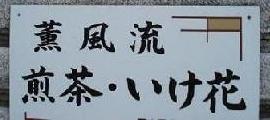 薫風流
煎茶・いけ花